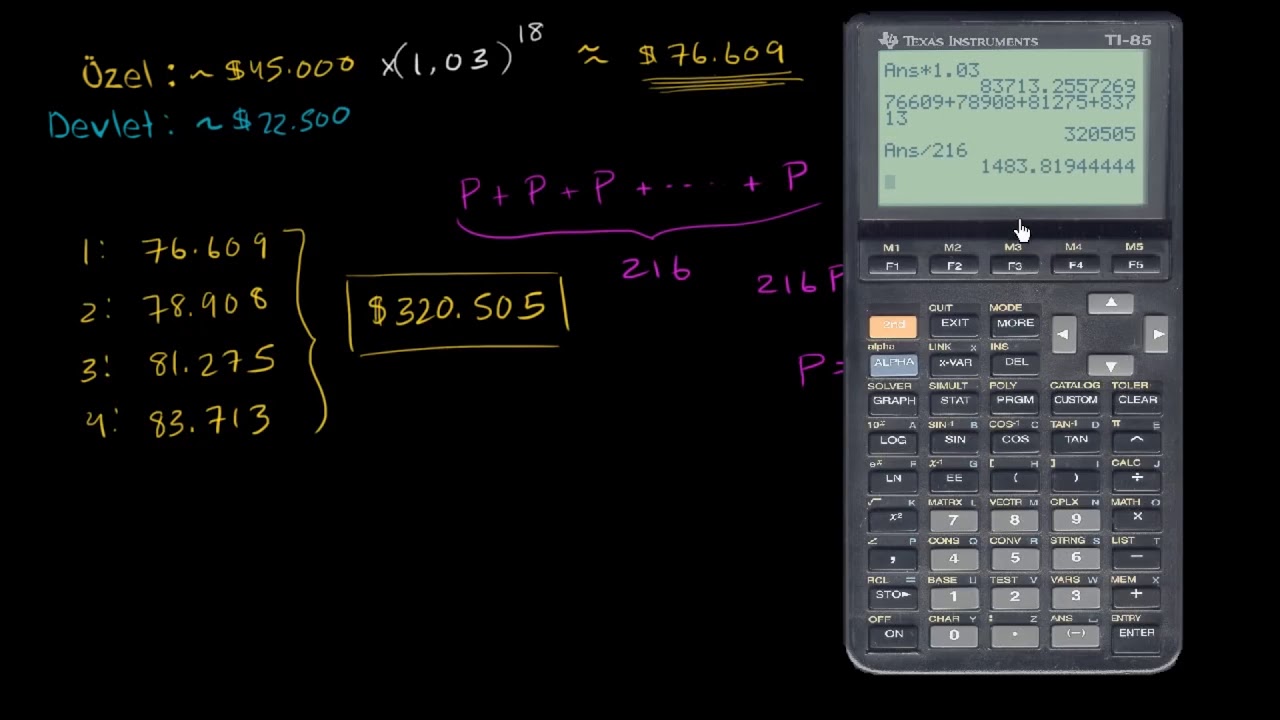 Özel: ~ $45.000 x(1,03)^18 ≈ $76.609
Devlet: ~$22.500
P + P + P + ..... + P
216
216P
P=
1: 76.609
2: 78.908
3: 81.275
4: 83.713
$320.505
TEXAS INSTRUMENTS TI-85
Ans*1.03
83713.2557269
76609+78908+81275+837
13
320505
Ans/216
1483.81944444
M1 M2 M3 M4 M5
F1 F2 F3 F4 F5
QUIT MODE
2nd EXIT MORE
alpha LINK x INS
ALPHA x-VAR DEL
SOLVER SIMULT POLY CATALOG TOLER
GRAPH STAT PRGM CUSTOM CLEAR
10ˣ A SIN⁻¹ B COS⁻¹ C TAN⁻¹ D π E
LOG SIN COS TAN ^
eˣ F x⁻¹ G [ H ] I CALC J
LN EE ( ) ÷
√ K MATRX L VECTR M CPLX N MATH O
x² 7 8 9 ×
∠ P CONS Q CONV R STRNG S LIST T
, 4 5 6 −
RCL = BASE U TEST V VARS W MEM X
STO► 1 2 3 +
OFF CHAR Y : Z ANS ␣ ENTRY
ON 0 . (−) ENTER